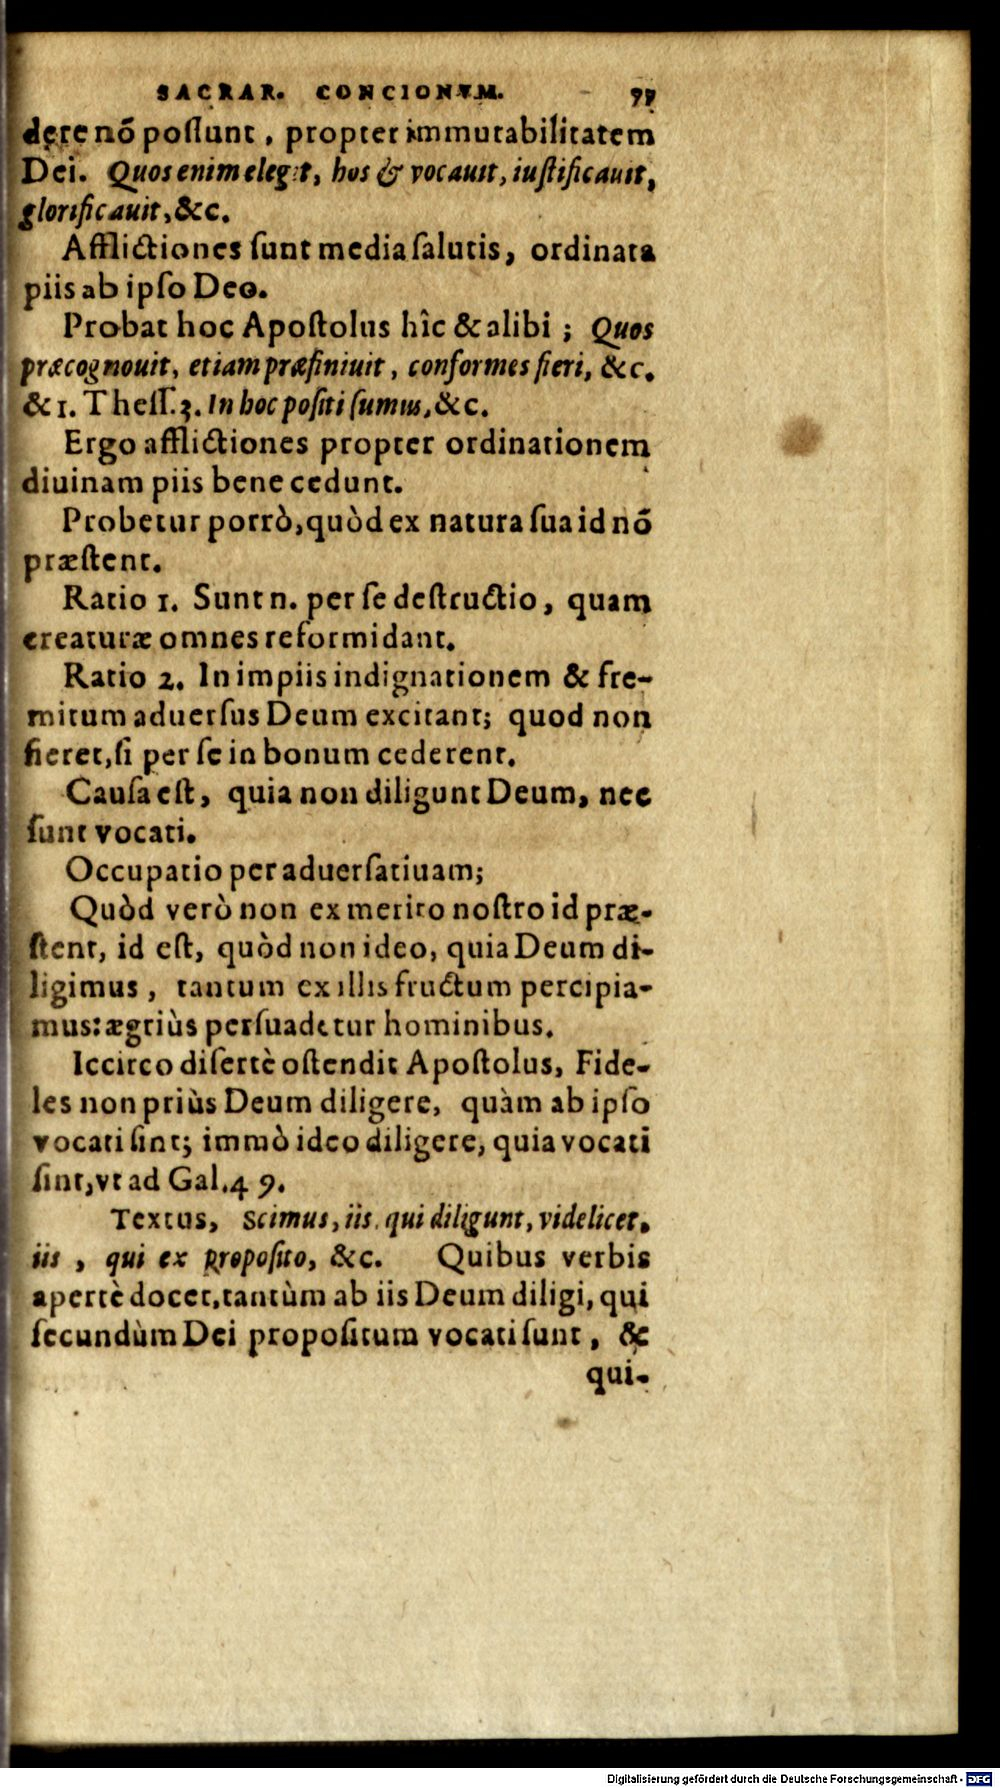 SACRAR. CONCIONVM. 77
dere nõ poſſunt, propter immutabilitatem
Dei. Quos enim elegit, hos & vocauit, iuſtificauit,
glorificauit, &c.
Afflictiones ſunt media ſalutis, ordinata
piis ab ipſo Deo.
Probat hoc Apoſtolus hîc & alibi ; Quos
præcognouit, etiam præfiniuit, conformes fieri, &c.
& 1. Theſſ. 3. In hoc poſiti ſumus, &c.
Ergo afflictiones propter ordinationem
diuinam piis bene cedunt.
Probetur porrò, quòd ex natura ſua id nõ
præſtent.
Ratio 1. Sunt n. per ſe deſtructio, quam
creaturæ omnes reformidant.
Ratio 2. In impiis indignationem & fre-
mitum aduerſus Deum excitant; quod non
fieret, ſi per ſe in bonum cederent.
Cauſa eſt, quia non diligunt Deum, nec
ſunt vocati.
Occupatio per aduerſatiuam;
Quòd verò non ex merito noſtro id præ-
ſtent, id eſt, quòd non ideo, quia Deum di-
ligimus, tantum ex illis fructum percipia-
mus: ægriùs perſuadetur hominibus.
Iccirco diſertè oſtendit Apoſtolus, Fide-
les non priùs Deum diligere, quàm ab ipſo
vocati ſint; immò ideo diligere, quia vocati
ſint, vt ad Gal. 4 9.
Textus, Scimus, iis, qui diligunt, videlicet,
iis, qui ex propoſito, &c. Quibus verbis
apertè docet, tantùm ab iis Deum diligi, qui
ſecundùm Dei propoſitum vocati ſunt, &
qui-
Digitalisierung gefördert durch die Deutsche Forschungsgemeinschaft - DFG